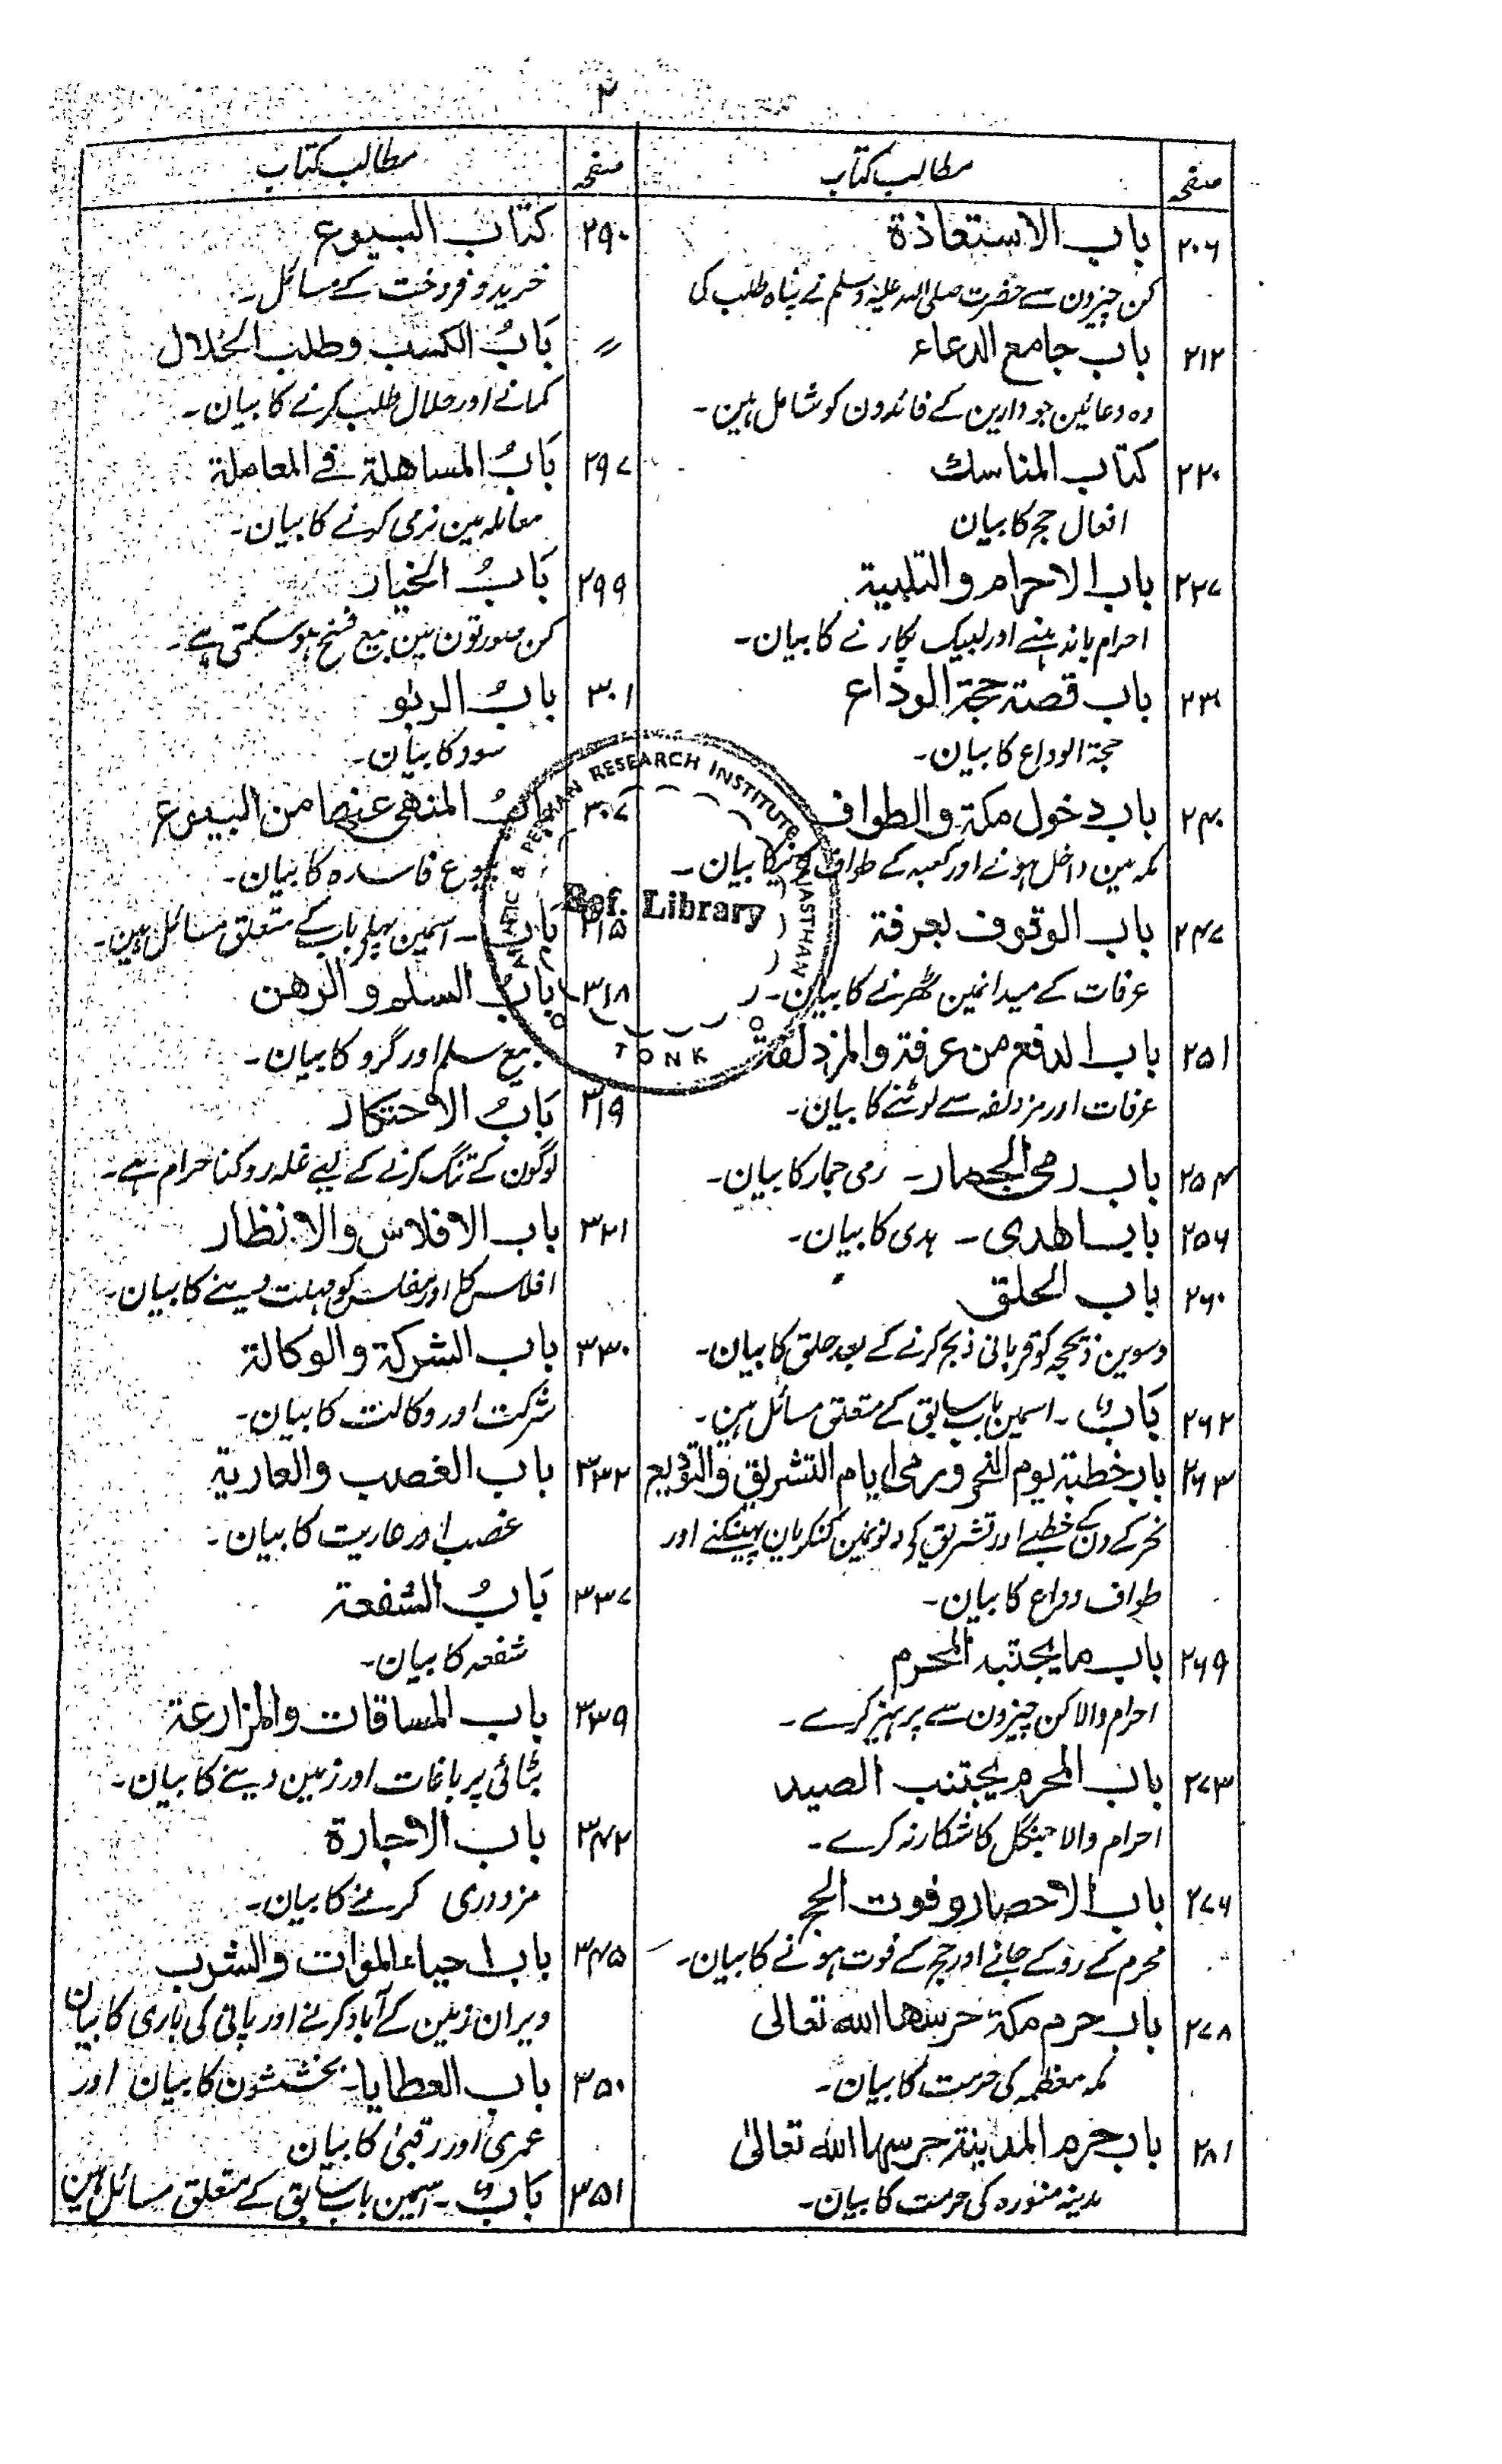 ۲
صفحہ مطالب کتاب
۲۰۶ باب الاستعاذة
کن چیزون سے حضرت صلی اللہ علیہ وسلم نے پناہ طلب کی
۲۱۲ باب جامع الدعاء
وہ دعائین جو دارین کے فائدون کو شامل ہین۔
۲۲۰ کتاب المناسك
افعال حج کا بیان
۲۲۷ باب الاحرام والتلبیة
احرام باندہنے اور لبیک پکارنے کا بیان۔
باب قصة حجة الوداع
حجۃ الوداع کا بیان۔
۲۴۰ باب دخول مکة والطواف
مکہ مین داخل ہونے اور کعبہ کے طواف کرنیکا بیان۔
۲۴۷ باب الوقوف بعرفة
عرفات کے میدانمین ٹھرنے کا بیان۔
۲۵۱ باب الدفع من عرفة والمزدلفة
عرفات اور مزدلفہ سے لوٹنے کا بیان۔
۲۵۴ باب رمی الجمار۔ رمی جمار کا بیان۔
۲۵۶ باب الهدی۔ ہدی کا بیان۔
۲۶۰ باب الحلق
دسوین ذیحجہ کو قربانی ذبح کرنے کے بعد حلق کا بیان۔
۲۶۲ بَابٌ۔ اسمین باب سابق کے متعلق مسائل ہین۔
۲۶۳ باب خطبة یوم النحر ورمی ایام التشریق والتودیع
نحر کے دن کے خطبے اور تشریق کے دنونمین کنکریان پھینکنے اور
طواف وداع کا بیان۔
۲۶۹ باب ما یجتنبه المحرم
احرام والا کن چیزون سے پرہیز کرے۔
۲۷۳ باب المحرم یجتنب الصید
احرام والا جنگل کا شکار نہ کرے۔
۲۷۶ باب الاحصار وفوت الحج
محرم کے روکے جانے اور حج کے فوت ہونے کا بیان۔
۲۷۸ باب حرم مکة حرسها الله تعالی
مکہ معظمہ کی حرمت کا بیان۔
۲۸۱ باب حرم المدینة حرسها الله تعالیٰ
مدینہ منورہ کی حرمت کا بیان۔
صفحہ مطالب کتاب
۲۹۰ کتاب البیوع
خرید و فروخت کے مسائل۔
〃 بَابُ الکسب وطلب الحلال
کمانے اور حلال طلب کرنے کا بیان۔
۲۹۷ بَابُ المساهلة فی المعاملة
معاملہ مین نرمی کرنے کا بیان۔
۲۹۹ بَابُ الخیار
کن صورتون مین بیع فسخ ہو سکتی ہے۔
۳۰۱ بابُ الربٰو
سود کا بیان۔
۳۰۷ بابُ المنهی عنها من البیوع
بیوع فاسدہ کا بیان۔
۳۱۵ باب۔ اسمین پہلے باب کے متعلق مسائل ہین۔
۳۱۸ بابُ السلم والرهن
بیع سلم اور گرو کا بیان۔
۳۱۹ بَابُ الاحتکار
لوگون کے تنگ کرنے کے لیے غلہ روکنا حرام ہے۔
۳۲۱ باب الافلاس والانظار
افلاس کا اور مفلس کو مہلت دینے کا بیان۔
۳۳۰ باب الشرکة والوکالة
شرکت اور وکالت کا بیان۔
۳۳۲ باب الغصب والعاریة
غصب اور عاریت کا بیان۔
۳۳۷ بَابُ الشفعة
شفعہ کا بیان۔
۳۳۹ باب المساقات والمزارعة
بٹائی پر باغات اور زمین دینے کا بیان۔
۳۴۲ باب الاجارة
مزدوری کرنے کا بیان۔
۳۴۵ باب احیاء الموات والشرب
ویران زمین کے آباد کرنے اور پانی کی باری کا بیان
۳۵۰ باب العطایا۔ بخششون کا بیان اور
عمری اور رقبیٰ کا بیان
۳۵۱ بَابٌ۔ اسمین باب سابق کے متعلق مسائل ہین
ARABIC & PERSIAN RESEARCH INSTITUTE RAJASTHAN
Ref. Library
TONK